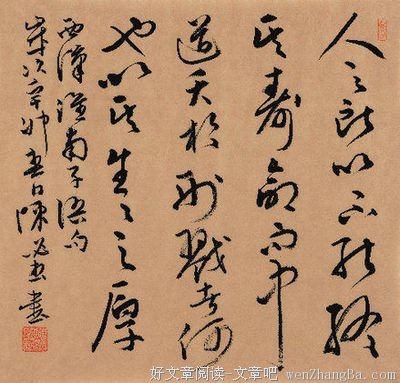 人之所以不能終
其壽命而中
道夭於刑戮者何
也以其生々之厚
西漢淮南子語句
歲次辛卯春日陳書
好文章阅读-文章吧
wenZhangBa.com